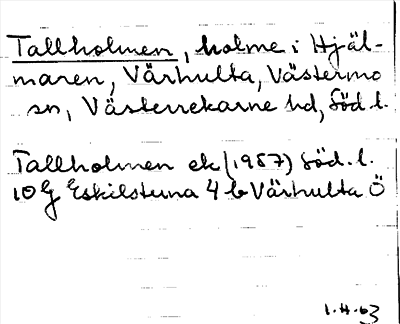 Tallholmen, holme i Hjäl-
maren, Vårhulta, Västermo
sn, Västerrekarne hd, Söd. l.
Tallholmen ek (1957) Söd. l.
10 G Eskilstuna 4 b Vårhulta Ö
1.4.63